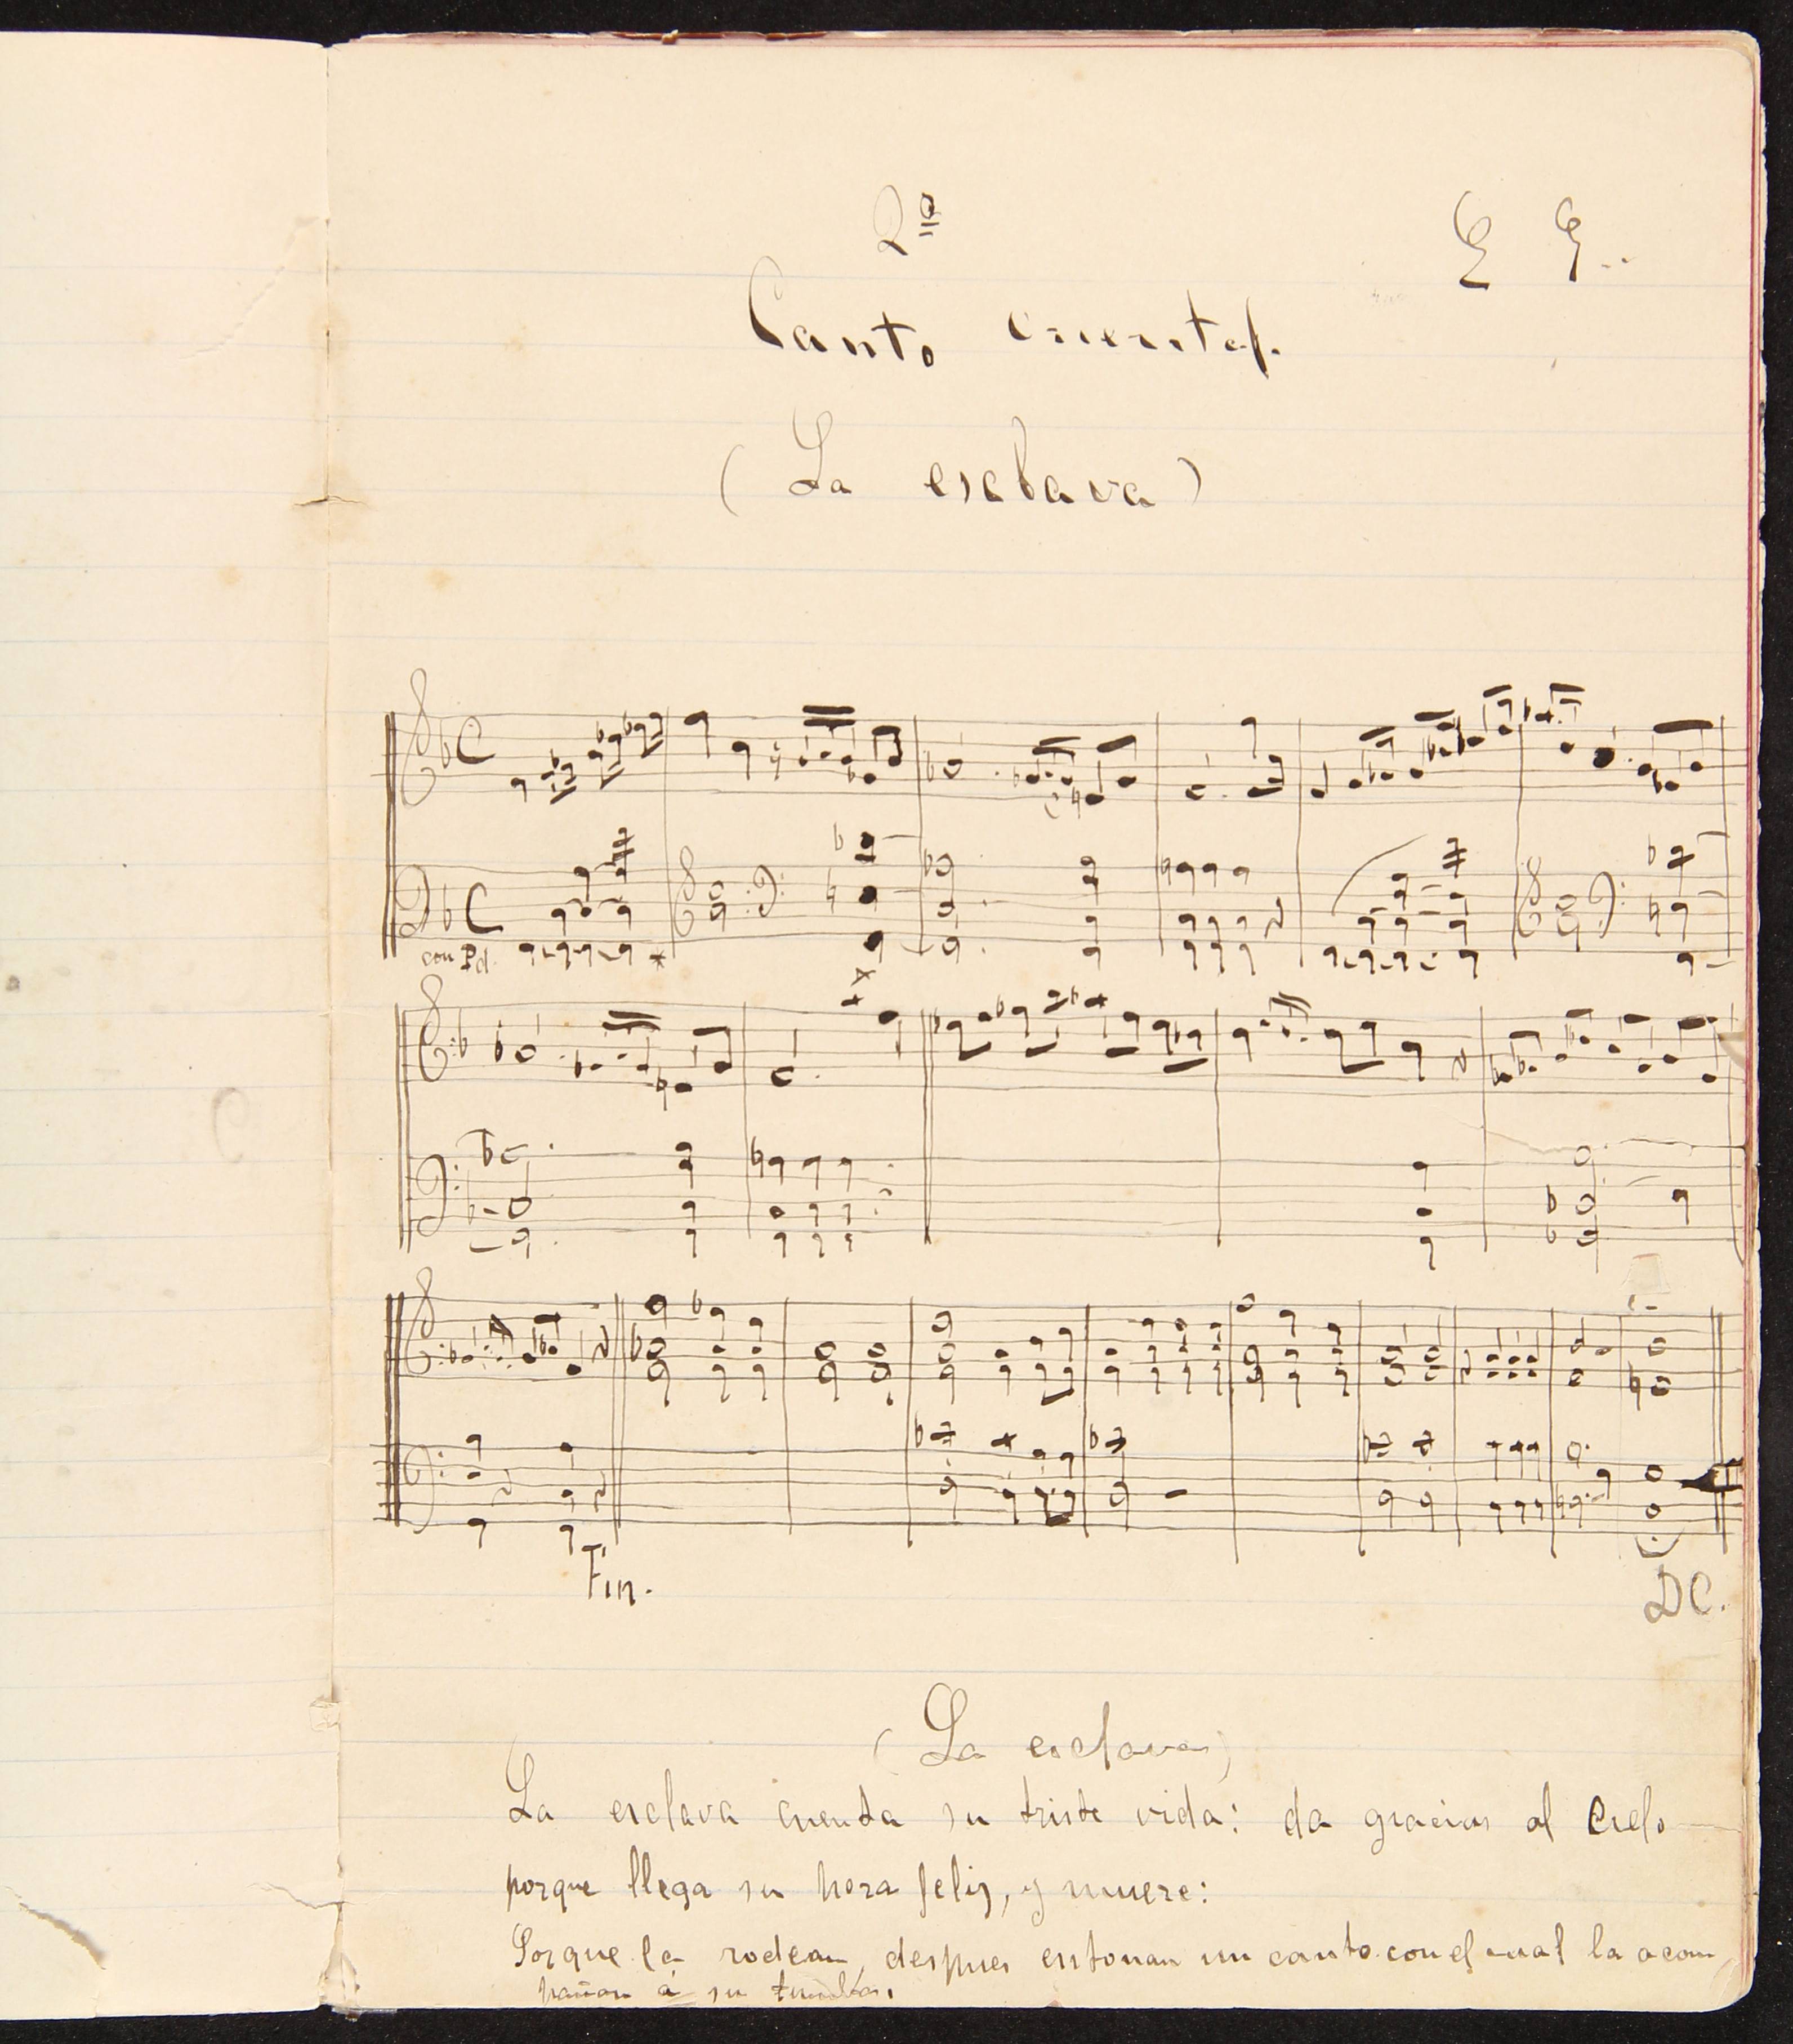 2ª
E E..
Canto oriental.
(La esclava)
con Pd.
Fin.
DC.
(La esclava)
La esclava cuenta su triste vida: da gracias al Cielo
porque llega su hora feliz, y muere:
Los que la rodean, despues entonan un canto con el cual la acom
pañan á su tumba.